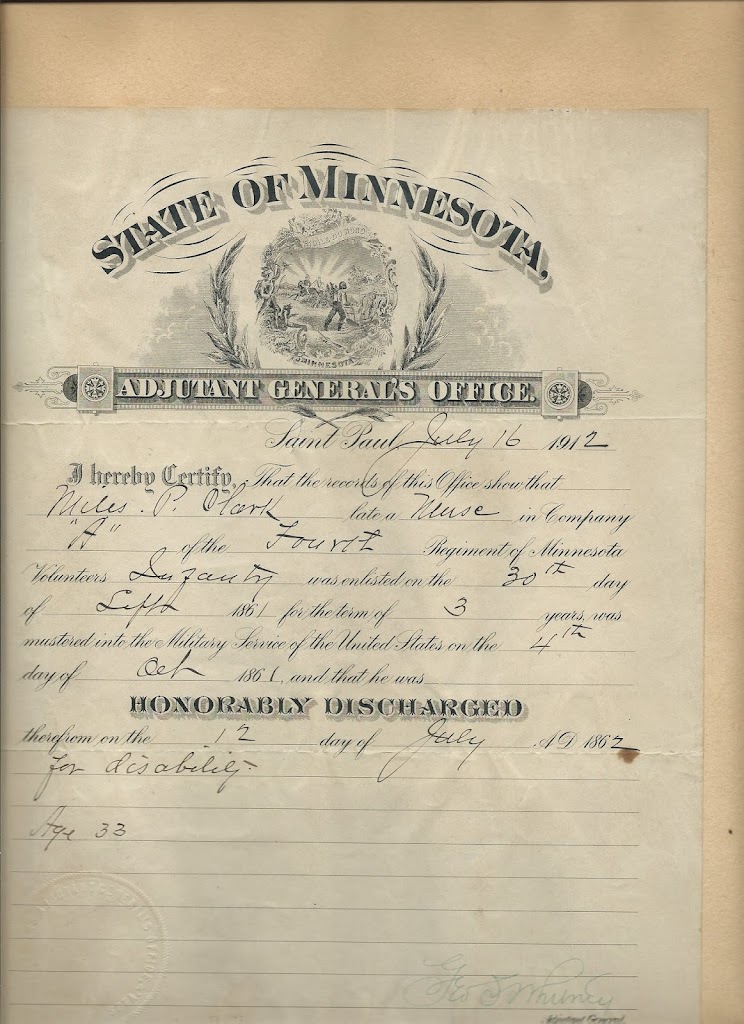 STATE OF MINNESOTA,
MINNESOTA
ADJUTANT GENERAL'S OFFICE.
Saint Paul July 16 1912
I hereby Certify, That the records of this Office show that
Miles. P. Clark late a Musc in Company
"A" of the Fourth Regiment of Minnesota
Volunteers Infantry was enlisted on the 30th day
of Sept 1861 for the term of 3 years, was
mustered into the Military Service of the United States on the 4th
day of Oct 1861, and that he was
HONORABLY DISCHARGED
therefrom on the 12 day of July A.D. 1862
for disability.
Age 33
Adjutant General